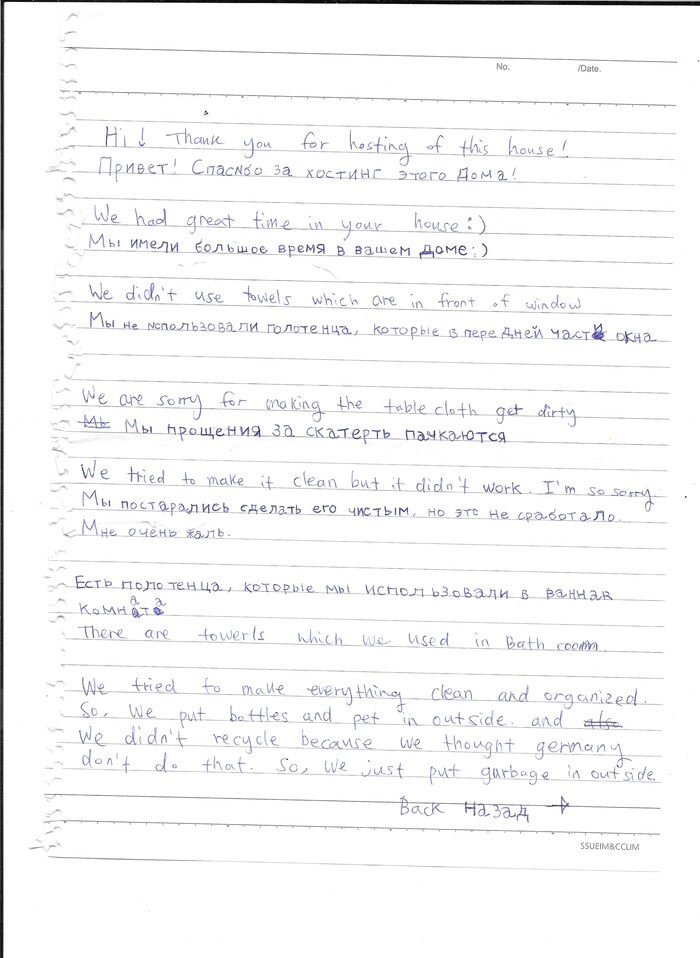 No. /Date.
Hi! Thank you for hosting of this house!
Привет! Спасибо за хостинг этого дома!
We had great time in your house:)
Мы имели большое время в вашем доме:)
We didn't use towels which are in front of window
Мы не использовали полотенца, которые в передней части окна
We are sorry for making the table cloth get dirty
Мы Мы прощения за скатерть пачкаются
We tried to make it clean but it didn't work. I'm so sorry.
Мы постарались сделать его чистым, но это не сработало.
Мне очень жаль.
Есть полотенца, которые мы использовали в ванная
комната
There are towerls which we used in Bath room
We tried to make everything clean and organized.
So, we put bottles and pet in outside. and also
We didn't recycle because we thought germany
don't do that. So, we just put garbage in outside.
Back назад →
SSUEIM&CCLIM